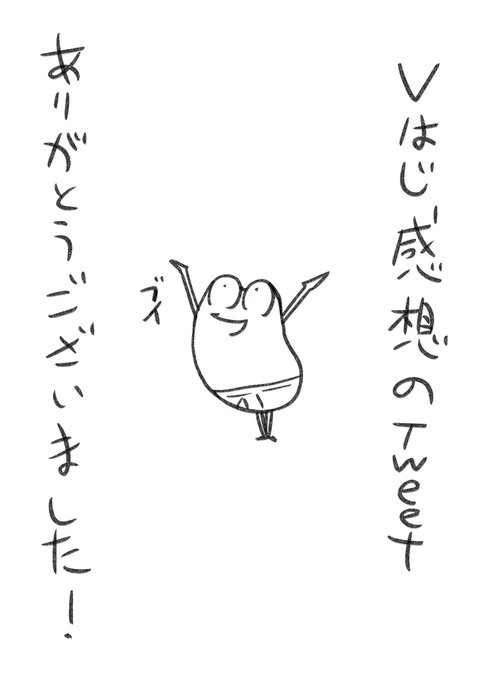 Vはじ感想のTweet
ブイ
ありがとうございました!